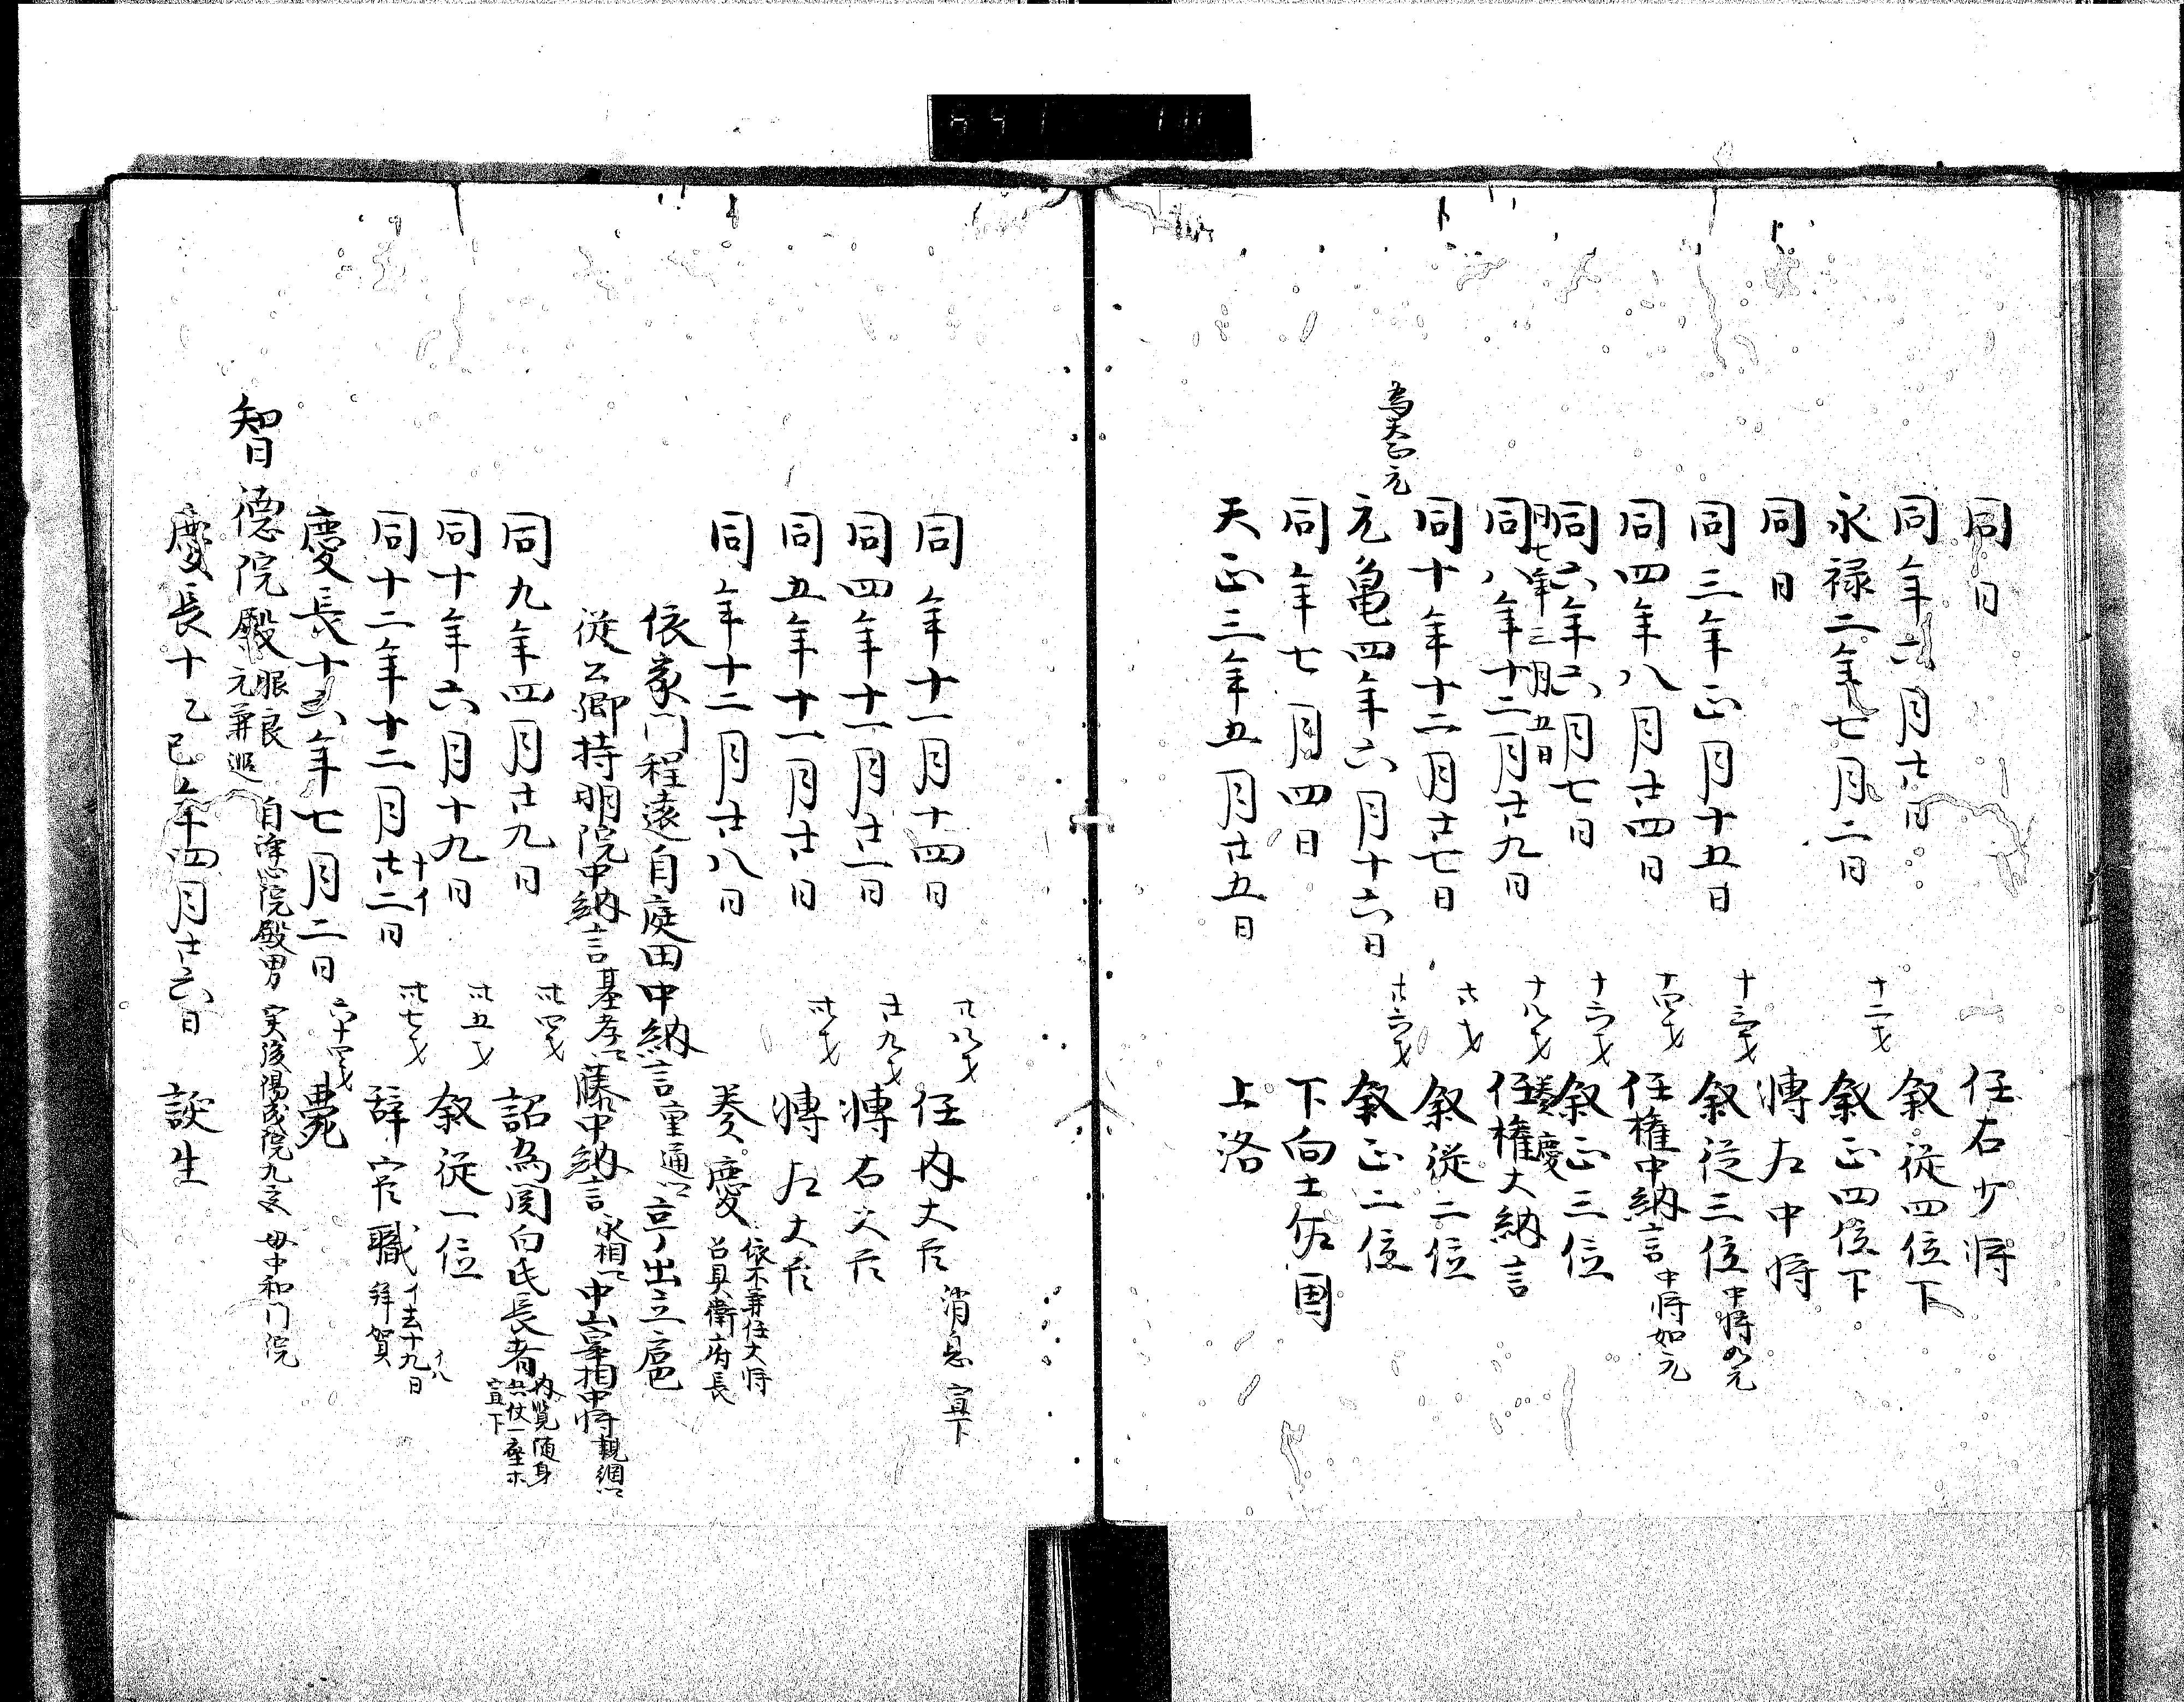 同日 任右少将
同年六月廿日 叙従四位下
永禄二年七月二日 十二才 叙正四位下
同日 轉左中将
同三年正月十五日 十三才 叙従三位 中将如元
同四年八月廿四日 十四才 任権中納言 中将如元
同六年六月七日 十六才 叙正三位
同七年三月五日 奏慶
同八年十二月廿九日 十八才 任権大納言
同十年十二月廿七日 廿才 叙従二位
為天正元
元亀四年六月十六日 廿六才 叙正二位
同年七月四日 下向土佐国
天正三年五月廿五日 上洛
同年十一月十四日 廿八才 任内大臣 消息宣下
同四年十一月廿一日 廿九才 轉右大臣
同五年十一月廿日 卅才 轉左大臣
同年十二月廿八日 奏慶 依不兼任大将
召具衛府長
依家門程遠自庭田中納言 重通卿 亭出立扈
従公卿持明院中納言 基孝卿 藤中納言 永相卿 中山宰相中将 親綱卿
同九年四月廿九日 卅四才 詔為関白氏長者 内覧随身
兵仗一座等
宣下
同十年六月十九日 卅五才 叙従一位
同十二年十二月廿二日 十イ 卅七才 辞官職 イ去十九日 イ八
拜賀
慶長十六年七月二日 六十四才 薨
智德院殿 昭良
元兼遐 自浄心院殿男 実後陽成院九宮 母中和門院
慶長十乙巳年四月廿六日 誕生